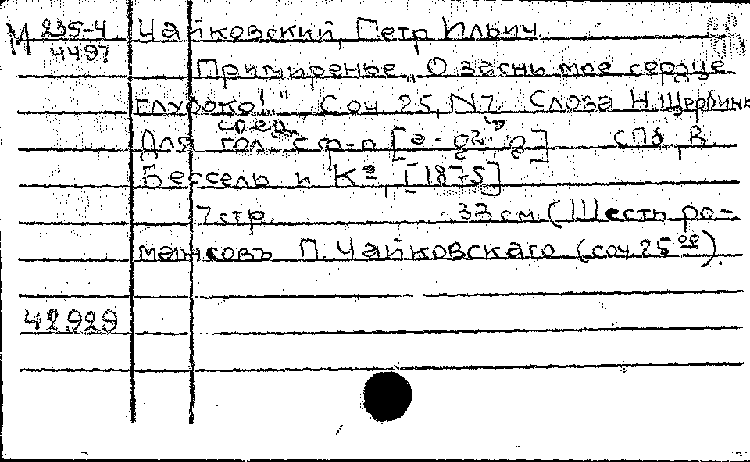 М 235-4 Чайковский, Петр Ильич.
4497
Примиренье „О засни мое сердце
глубоко!" Соч 25, N1. Слова Н. Щербины
сред.
Для гол. с ф-п СПб, В.
Бессель и К⁰, [1875]
7 стр. 33 см (Шесть ро-
мансовъ П. Чайковскаго (соч 25ое).
42929